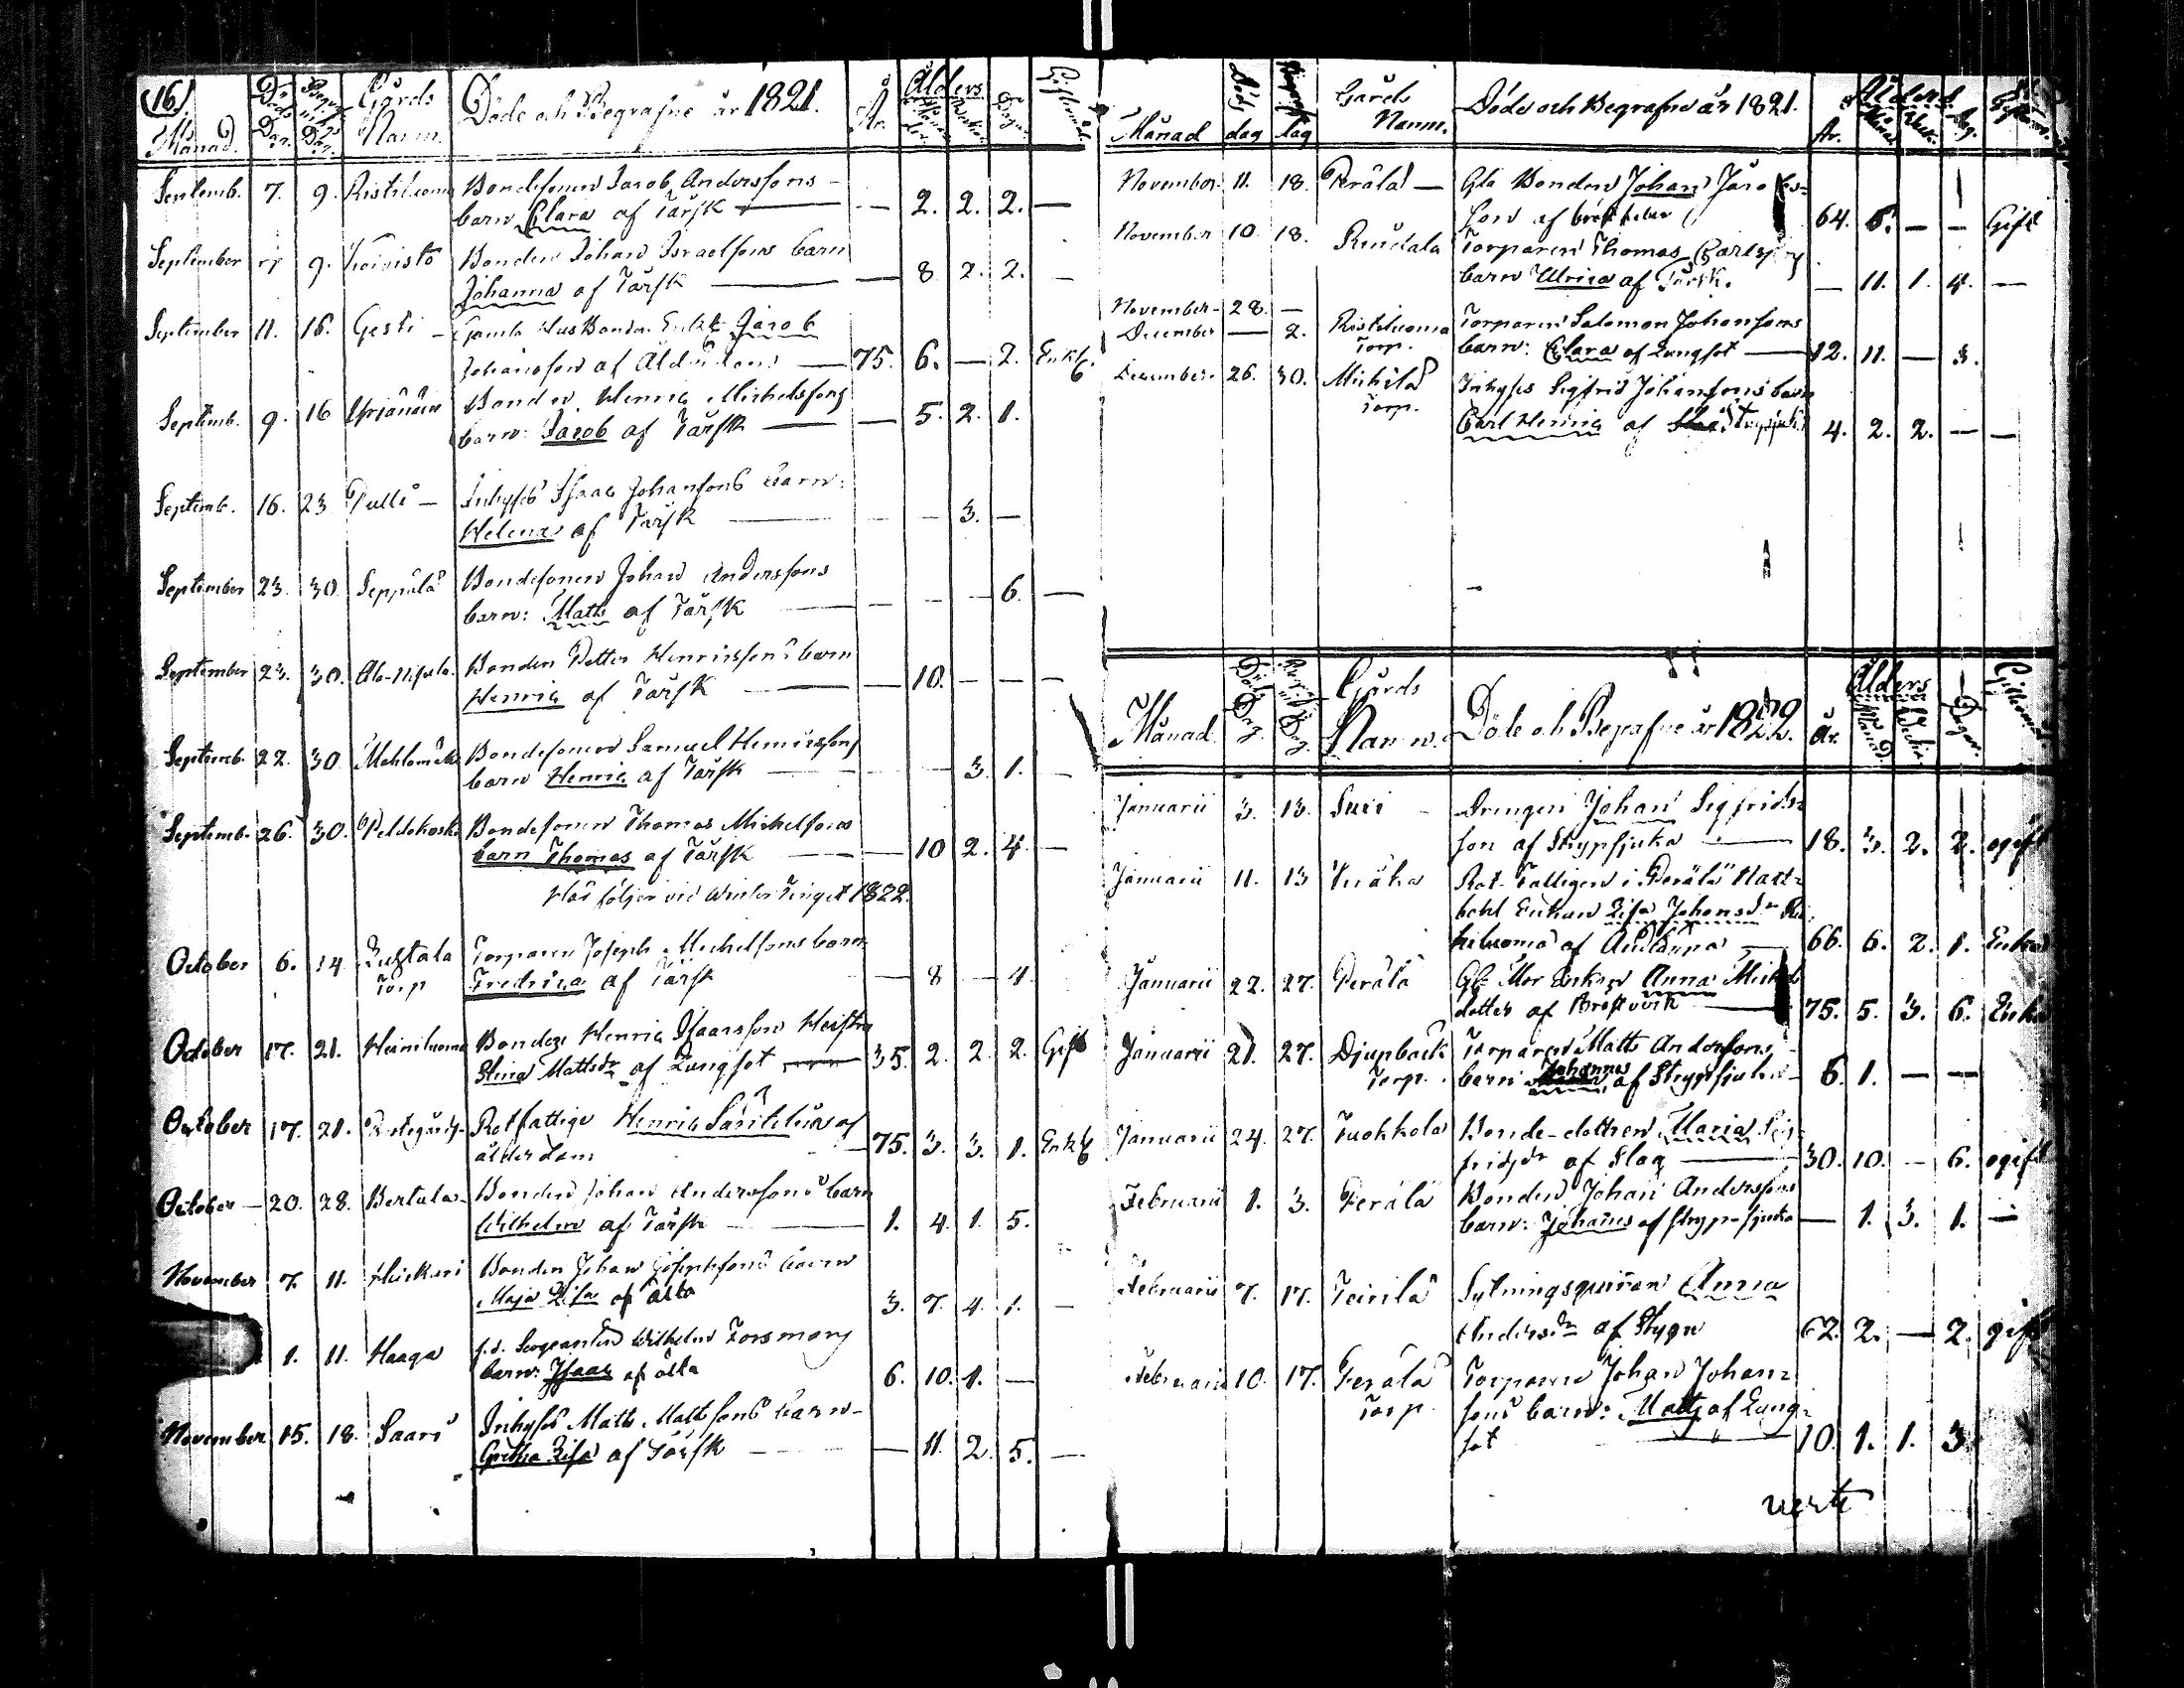 (16)
Månad. Döds Dag. Begrafnings Dag. Gårds Namn. Döde och Begrafne år 1821. År. Ålders Månader. Veckor. Dagar. Giftermål.
Septemb. 7. 9. Ristiluoma Bondesonen Jacob Anderssons –
barn Clara af Tärsk — — 2. 2. 2. —
September 7 9. Koivisto Bonden Johan Israelssons barn
Johanna af Tärsk — — 8 2. 2. —
September 11. 16. Gesti – Gamle Husbonden Enkl. Jacob
Johansson af Ålderdom — 75. 6. — 2. Enkl.
Septemb. 9. 16 Yrjänäin Bonden Henric Michelssons
barn: Jacob af Tärsk — — 5. 2. 1.
Septemb. 16. 23 Pulli – Inhyses Isaac Johanssons barn:
Helena af Tärsk — — — 3. —
September 23. 30. Seppälä Bondesonen Johan Anderssons
barn: Matts af Tärsk — — — — 6. —
September 23. 30. Bonden Petter Henricssons barn
Henric af Tärsk — — 10. — — —
Septemb. 22. 30. Bondesonen Samuel Henricssons
barn Henric af Tärsk — — — 3. 1. —
Septemb. 26. 30. Peldokoski Bondesonen Thomas Michelssons
barn Thomas af Tärsk — — 10 2. 4. —
Här följer vid Winter Tinget 1822.
October 6. 14 Torparen Joseph Michelssons barn
Torp Fredrica af Tärsk — 8 — 4.
October 17. 21. Heiniluoma Bonden Henric Isaacsson Hustru
Stina Mattsdr af Lungsot — 35. 2. 2. 2. Gift
October 17. 21. Rotfattige Henric af
ålderdom — 75. 3. 3. 1. Enkl.
October – 20. 28. Bertula – Bonden Johan Anderssons barn
Wilhelm af Tärsk — 1. 4. 1. 5.
November 7. 11. Bonden Johan Josephssons barn
Maja Lisa af ålta 3. 7. 4. 1. –
1. 11. Haaga f.d. Sergeanten Wilhelm Forsmans
barn: Isaac af ålta 6. 10. 1. —
November 15. 18. Saari Inhyses Matts Mattssons barn –
Gretha Lisa af Tärsk — — 11. 2. 5. —
Månad Döds dag Begrafn. dag Gårds Namn. Döde och Begrafne år 1821. År. Ålders Månad. Veck. Dag. Gifterm.
November. 11. 18. Perälä — Gla Bonden Johan
son af 64. 6. — — Gift
November 10. 18. Rindala Torparen Thomas Carlssons
barn Ulrica af Tärsk. — 11. 1. 4. —
November – 28. —
December — 2. Ristiluoma Torparen Salomon Johanssons
Torp. barn: Clara af Lungsot — 12. 11. — 3.
December. 26. 30. Michilä Inhyses Sigfrid Johanssons barn
Torp. Carl Henric af 4. 2. 2. — —
Månad Döds Dag. Begrafnings Dag. Gårds Namn. Döde och Begrafne år 1822. År. Ålders Månad Veckor Dagar. Giftermål
Januarii 3. 13. Suxi – Drengen Johan Sigfrids-
son af Strypsjuka — 18. 3. 2. 2. ogift
Januarii 11. 13 Rot-Fattigen i Perälä
Enkan Lisa Johansdr
af 66. 6. 2. 1. Enka
Januarii 22. 27. Perälä Gl. Mor Enkan Anna Michels
dotter af Bröstverk — 75. 5. 3. 6. Enka
Januarii 21. 27. Djupbäck Torparen Matts Anderssons –
Torp. barn Johannes af Strypsjuka – 6. 1. — —
Januarii 24. 27. Tuokkola Bonde-dottren Maria Sig-
fridsdr af Slag — 30. 10. – 6. ogift
Februarii 1. 3. Perälä Bonden Johan Anderssons
barn: Johannes af Strypsjuka — 1. 3. 1. —
Februarii 7. 17. Teirilä Sytningsquinnan Anna
Andersdr af Stygn 62. 2. — 2. gift
Februarii 10. 17. Perälä Torparen Johan Johans-
Torp. sons barn: Matts af Lung-
sot — 10. 1. 1. 3
verte